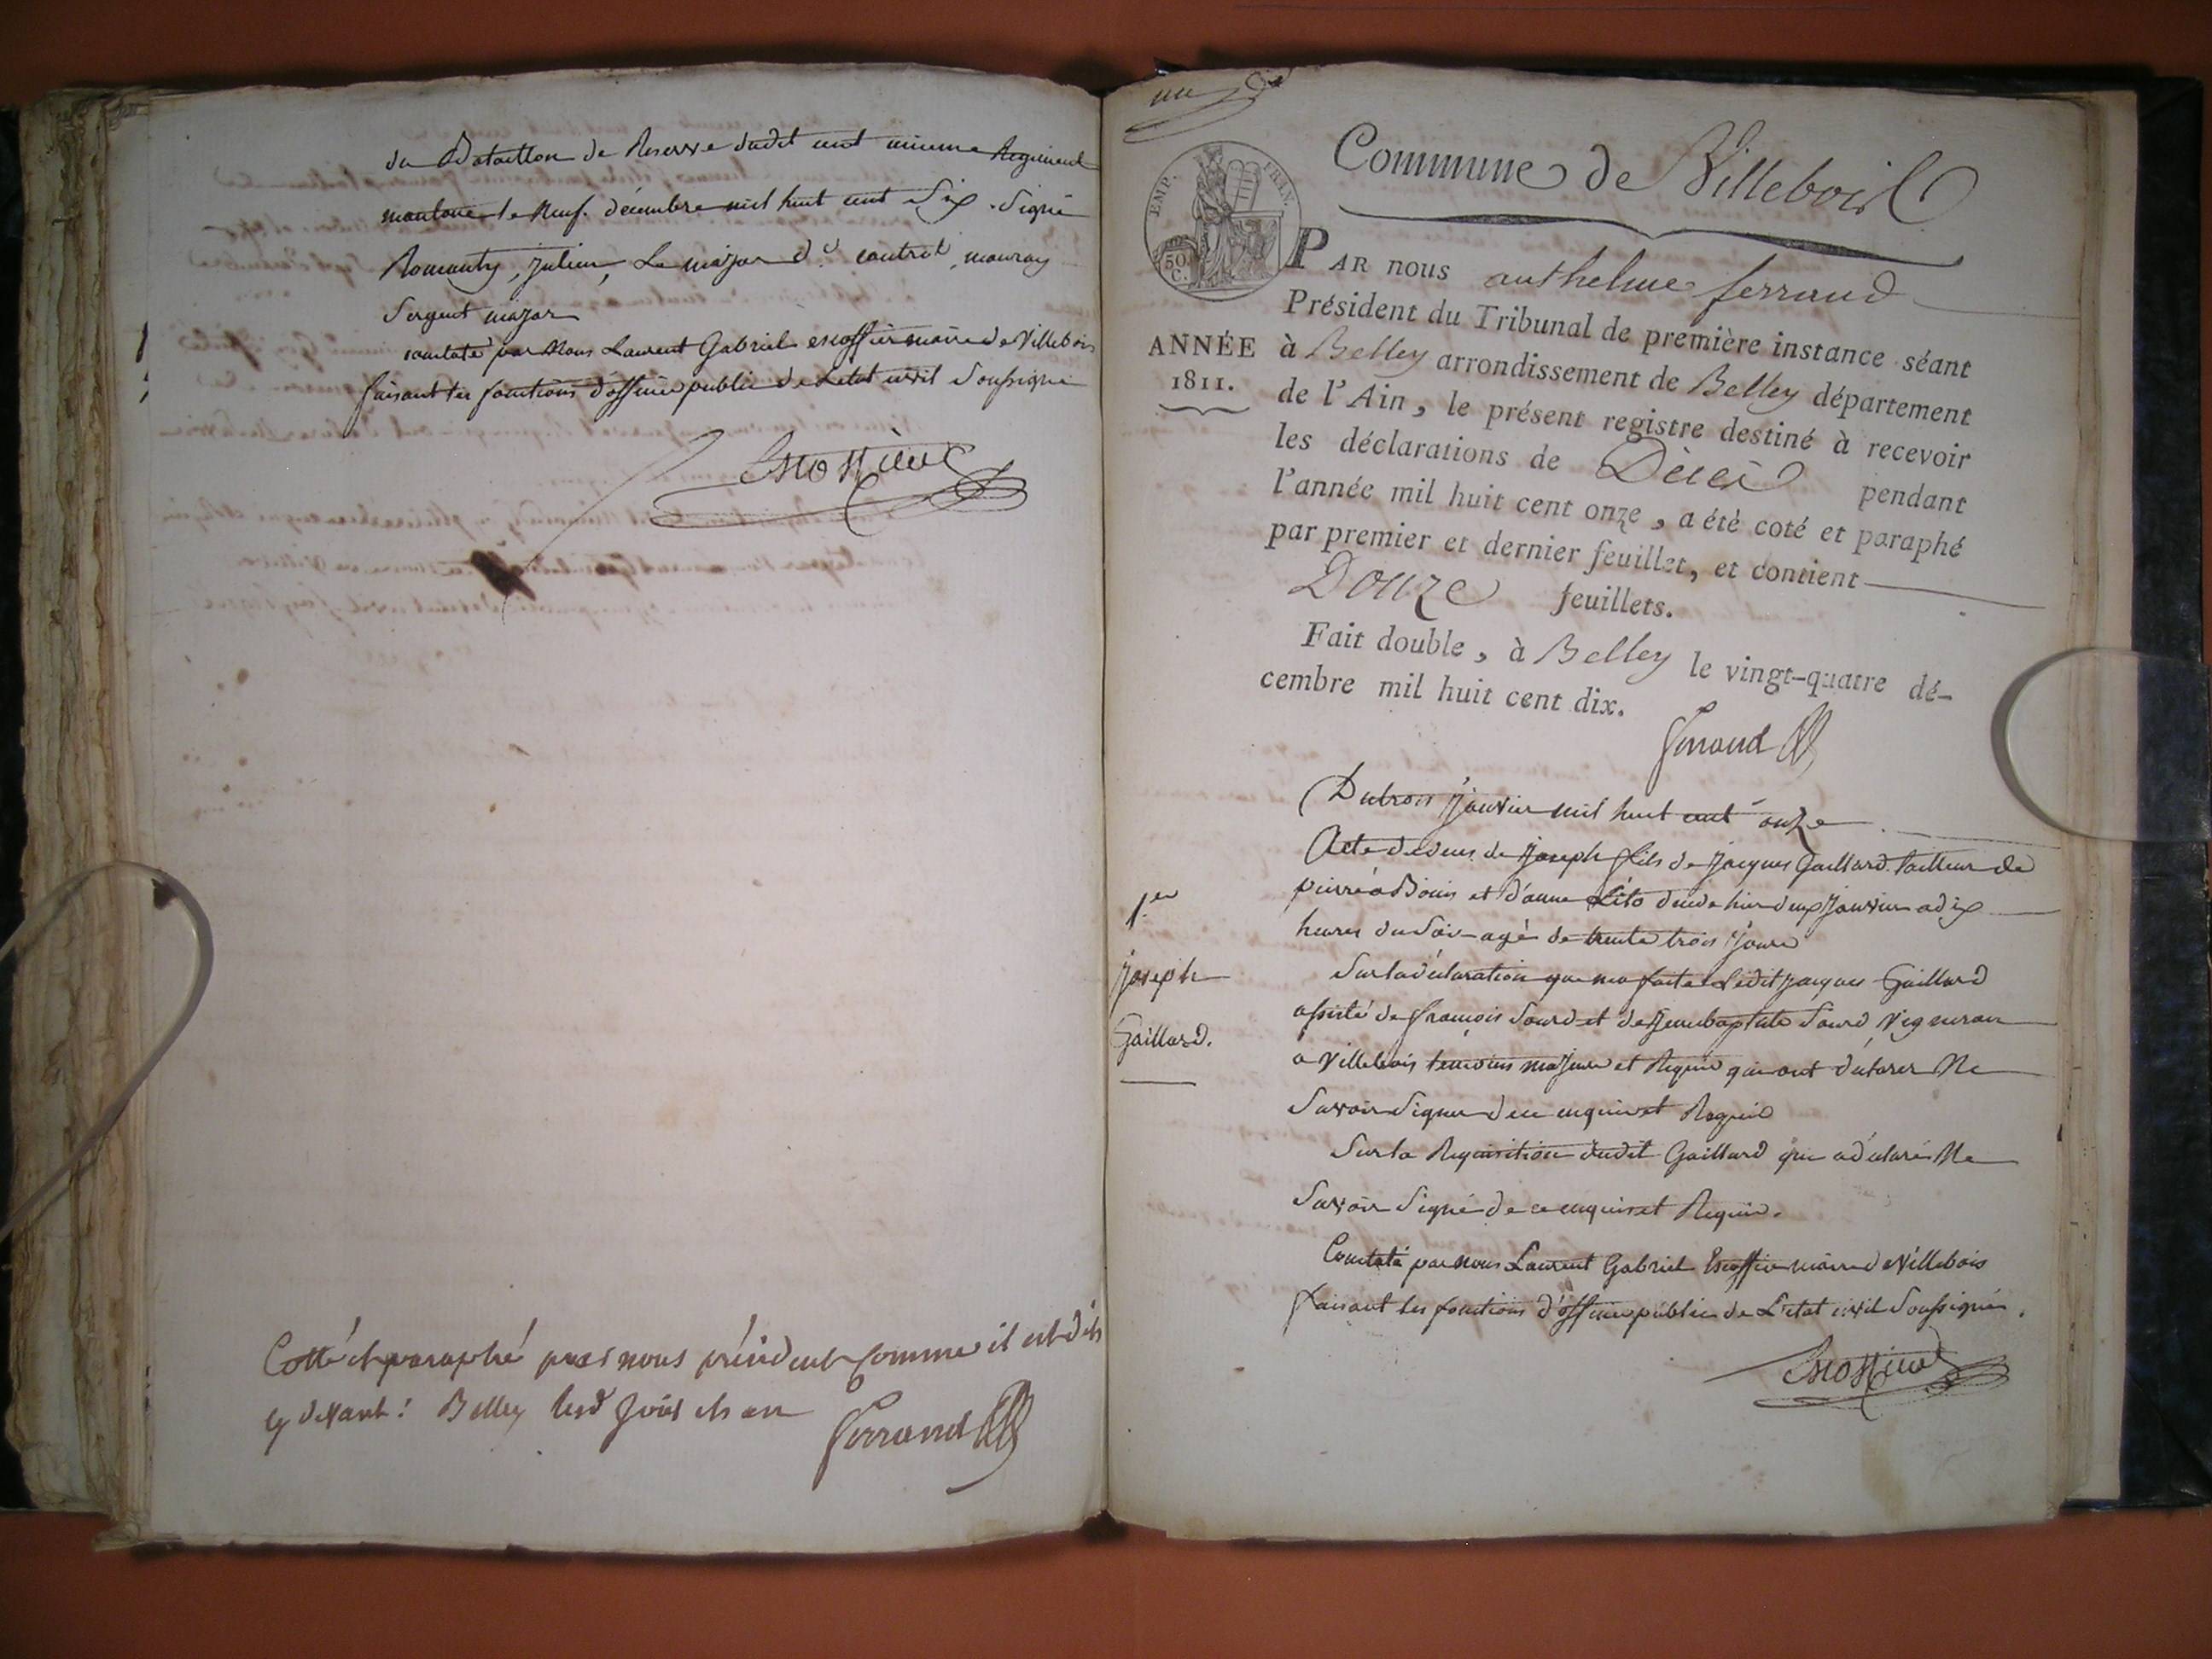 du Bataillon de Reserve dudit cent unieme Regiment
mantoue le Neuf. decembre mil huit cent dix. Signé
Romanty, julien, Le major d.
Sergent major
constaté par Nous Laurent Gabriel escoffier maire de Villebois
faisant les fonctions d'officier public de Letat civil Soussigné
Escoffier
Cotté et paraphé par nous président comme il est dit
cy devant: Belley lesd jour et an
Ferrand
un
Commune de Villebois
EMP. FRAN.
50 C.
PAR nous anthelme ferrand
Président du Tribunal de première instance séant
ANNÉE
1811.
à Belley arrondissement de Belley département
de l'Ain, le présent registre destiné à recevoir
les déclarations de Décès pendant
l'année mil huit cent onze, a été coté et paraphé
par premier et dernier feuillet, et contient
Douze feuillets.
Fait double, à Belley le vingt-quatre dé-
cembre mil huit cent dix.
Ferrand
Du trois Janvier mil huit cent onze
1.er
Joseph
Gaillard.
Acte de deces de Joseph fils de Jacques Gaillard tailleur de
pierre a Bouis et d'anne décédé hier deux Janvier a dix
heures du Soir agé de trente trois Jours
Sur la déclaration que ma faite Ledit Jacques Gaillard
assisté de françois Sourd et de Jean baptiste Sourd, Vigneron
a Villebois temoins majeurs et Requis qui ont déclarer Ne
Savoir Signer de ce enquis et Requis
Sur la Requisition dudit Gaillard qui a déclaré Ne
Savoir Signé de ce enquis et Requis.
Constaté par nous Laurent Gabriel Escoffier maire de Villebois
faisant les fonctions d'officier public de L'etat civil Soussigné.
Escoffier